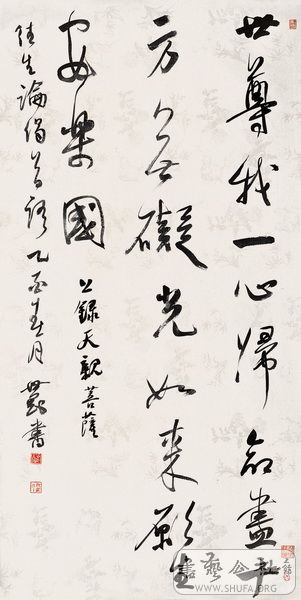 世尊我一心歸命盡十
方無礙光如來願生
安樂國
上錄天親菩薩
往生論偈首頌乙酉春月
書藝公社
WWW.SHUFA.ORG